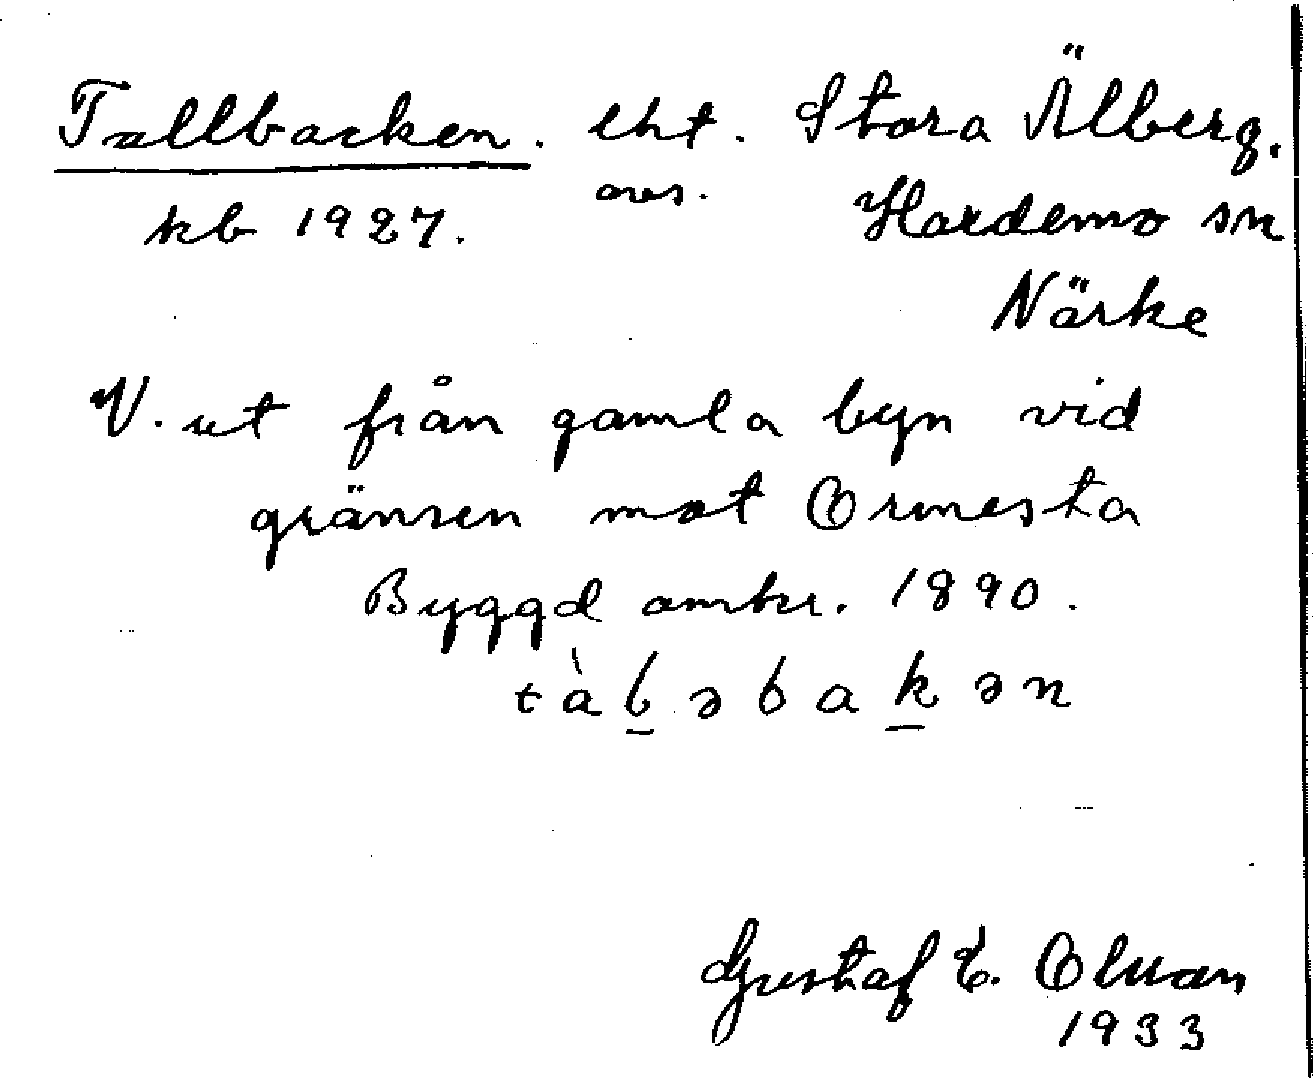 Tallbacken. lht. Stora Älberg.
kb 1927. avs. Hardemo sn
Närke
V. ut från gamla byn vid
gränsen mot Ormesta
Byggd omkr. 1890.
tàb̲əbak̲ən
Gustaf E. Olsson
1933